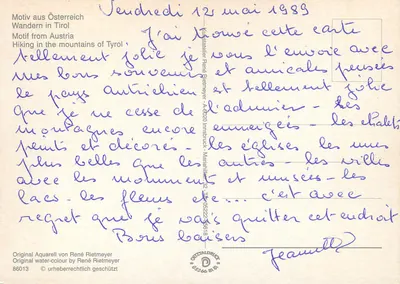 Vendredi 12 mai 1989
Motiv aus Österreich
Wandern in Tirol
Motif from Austria
Hiking in the mountains of Tyrol
J'ai trouvé cette carte
tellement jolie je vous l'envoie avec
mes bons souvenirs et amicales pensées
le pays autrichien est tellement jolie
que je ne cesse de l'admirer - les
montagnes encore enneigées - les chalets
peints et décorés - les églises les unes
plus belles que les autres - les villes
avec les monuments et musées - les
lacs - les fleurs etc... c'est avec
regret que je vais quitter cet endroit
Bons baisers
Jeannette
Original Aquarell von René Rietmeyer
Original water-colour by René Rietmeyer
86013 © urheberrechtlich geschützt